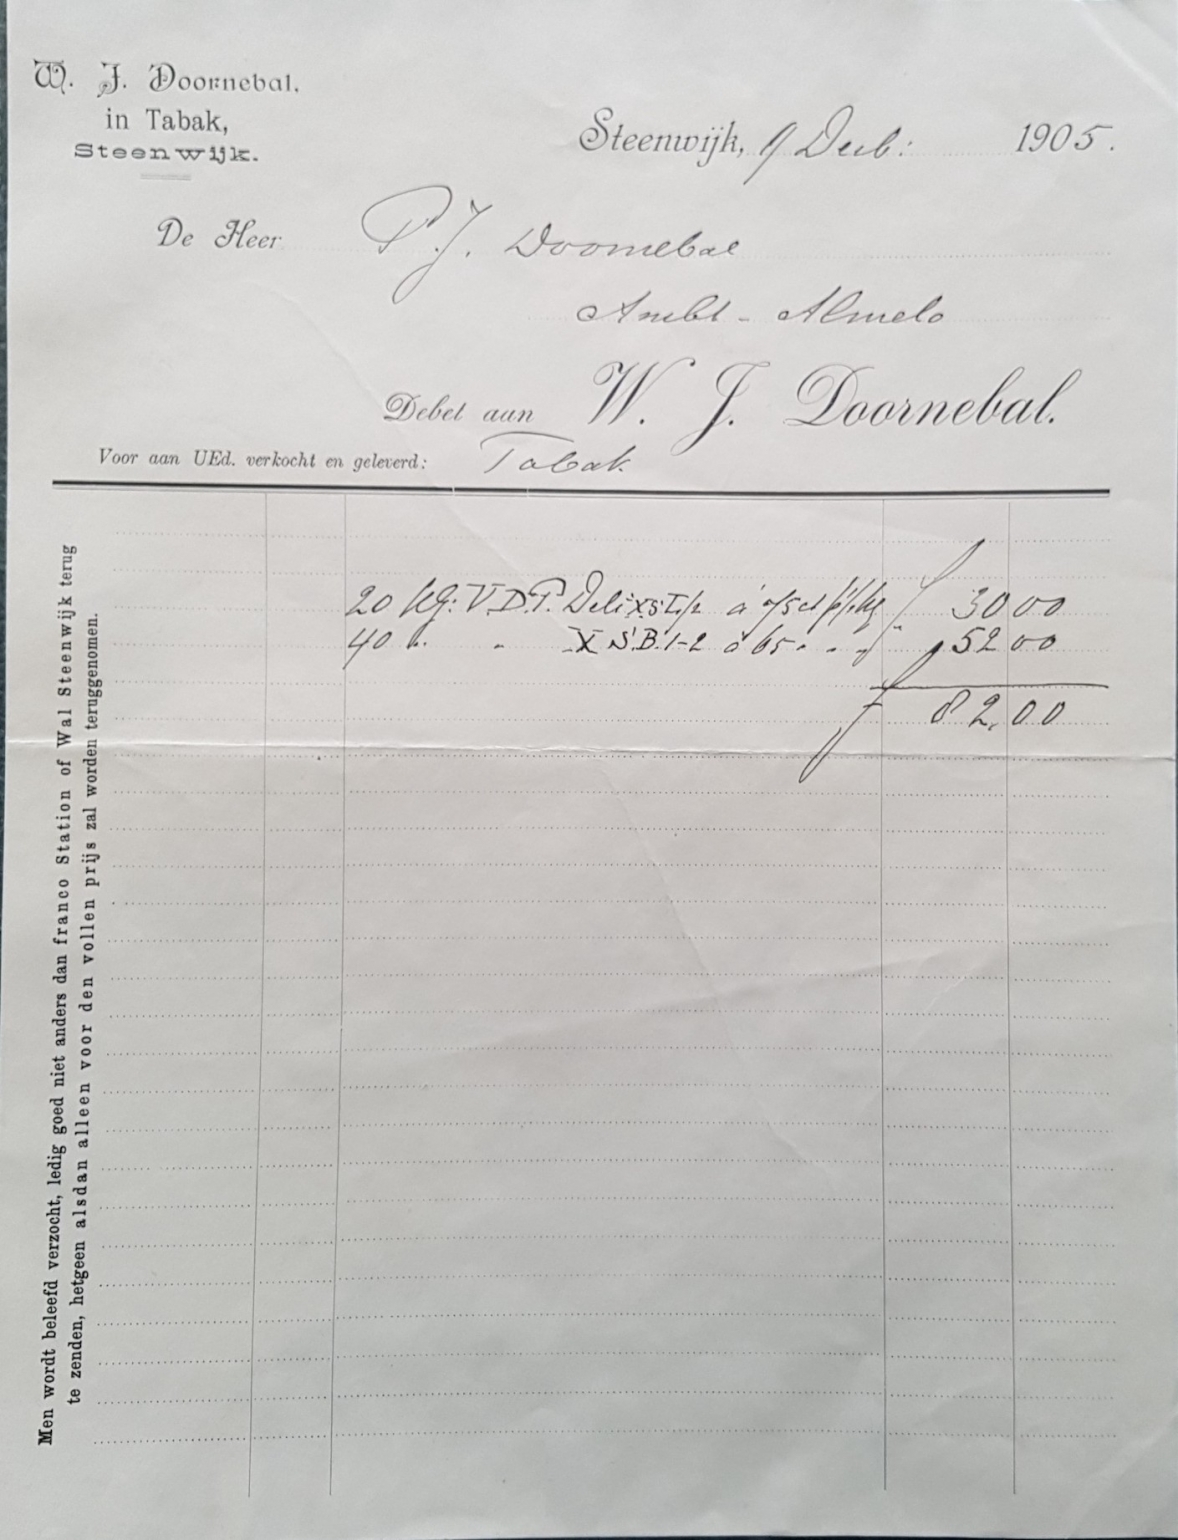 W. J. Doornebal.
in Tabak,
Steenwijk.
Steenwijk, 9 Decb: 1905.
De Heer P. J. Doornebal
Ambt - Almelo
Debet aan W. J. Doornebal.
Voor aan UEd. verkocht en geleverd: Tabak
20 Kg: V.D.P. Deli 30 00
40 " " X S.B. 1-2 á 65 " " " 52 00
f 82.00
Men wordt beleefd verzocht, ledig goed niet anders dan franco Station of Wal Steenwijk terug
te zenden, hetgeen alsdan alleen voor den vollen prijs zal worden teruggenomen.